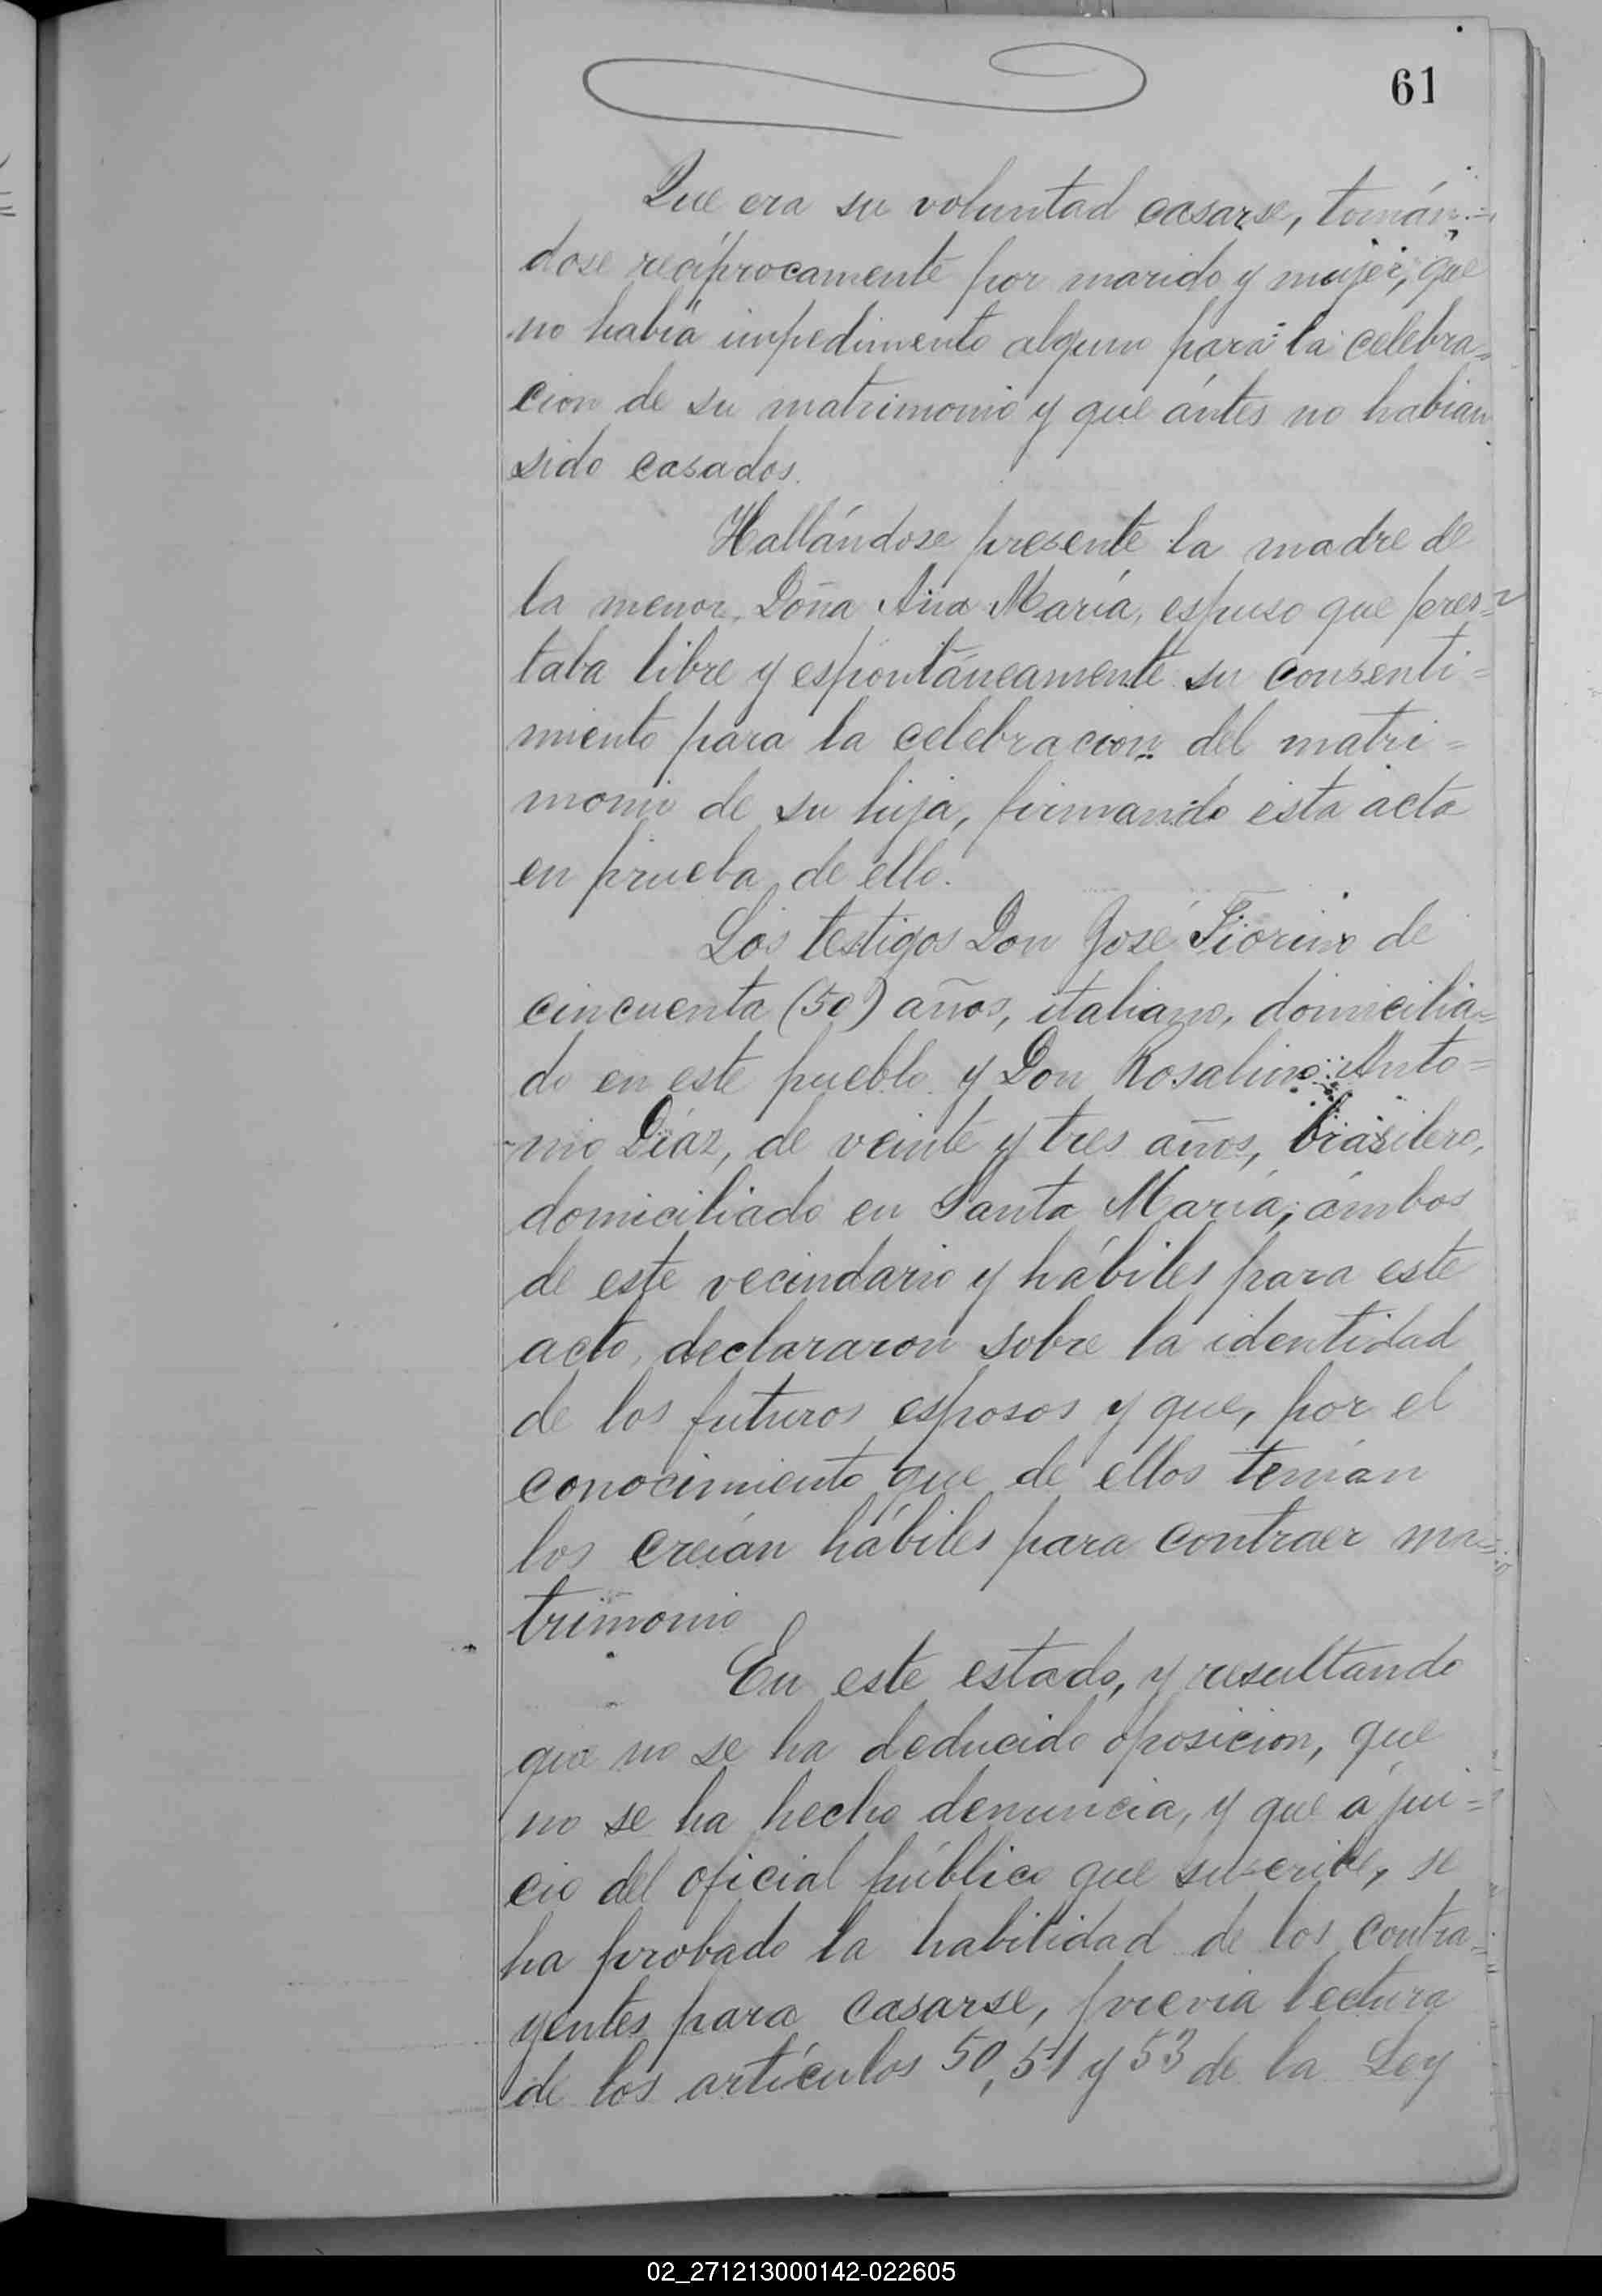 61
Que era su voluntad casarse, tomán=
dose recíprocamente por marido y mujer, que
no había impedimento alguno para la celebra=
cion de su matrimonio y que ántes no habian
sido casados.
Hallándose presente la madre de
la menor, Doña Ana María, espuso que pres=
taba libre y espontáneamente su consenti=
miento para la celebracion del matri=
monio de su hija, firmando esta acta
en prueba de ello.
Los testigos Don José Fiorino de
cincuenta (50) años, italiano, domicilia=
do en este pueblo y Don Rosalino Anto=
nio Díaz, de veinte y tres años, brasilero,
domiciliado en Santa María, ámbos
de este vecindario y hábiles para este
acto, declararon sobre la identidad
de los futuros esposos y que, por el
conocimiento que de ellos tenían
los creían hábiles para contraer ma=
trimonio
En este estado, y resultando
que no se ha deducido oposicion, que
no se ha hecho denuncia, y que á jui=
cio del oficial público que suscribe, se
ha probado la habilidad de los contra=
yentes para casarse, previa lectura
de los artículos 50, 51 y 53 de la Ley
02_271213000142-022605